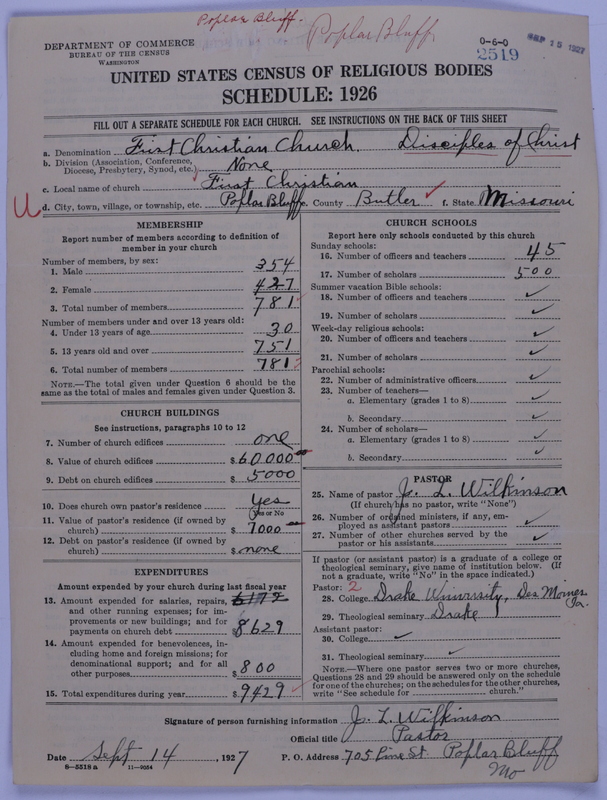 Poplar Bluff.
Poplar Bluff
DEPARTMENT OF COMMERCE
BUREAU OF THE CENSUS
WASHINGTON
0-6-0
2519
SEP 15 1927
UNITED STATES CENSUS OF RELIGIOUS BODIES
SCHEDULE: 1926
FILL OUT A SEPARATE SCHEDULE FOR EACH CHURCH. SEE INSTRUCTIONS ON THE BACK OF THIS SHEET
a. Denomination First Christian Church. Disciples of Christ
b. Division (Association, Conference, Diocese, Presbytery, Synod, etc.) None
c. Local name of church First Christian
U d. City, town, village, or township, etc. Poplar Bluff e. County Butler ✓ f. State Missouri
MEMBERSHIP
Report number of members according to definition of member in your church
Number of members, by sex:
1. Male 354
2. Female 427
3. Total number of members 781
Number of members under and over 13 years old:
4. Under 13 years of age 30
5. 13 years old and over 751
6. Total number of members 781
NOTE.—The total given under Question 6 should be the same as the total of males and females given under Question 3.
CHURCH BUILDINGS
See instructions, paragraphs 10 to 12
7. Number of church edifices one
8. Value of church edifices $60000
9. Debt on church edifices $5000
10. Does church own pastor's residence Yes
Yes or No
11. Value of pastor's residence (if owned by church) $7000
12. Debt on pastor's residence (if owned by church) $none
EXPENDITURES
Amount expended by your church during last fiscal year
13. Amount expended for salaries, repairs, and other running expenses; for improvements or new buildings; and for payments on church debt 6172 $8629
14. Amount expended for benevolences, including home and foreign missions; for denominational support; and for all other purposes $800
15. Total expenditures during year $9429
CHURCH SCHOOLS
Report here only schools conducted by this church
Sunday schools:
16. Number of officers and teachers 45
17. Number of scholars 500
Summer vacation Bible schools:
18. Number of officers and teachers ✓
19. Number of scholars ✓
Week-day religious schools:
20. Number of officers and teachers ✓
21. Number of scholars ✓
Parochial schools:
22. Number of administrative officers ✓
23. Number of teachers—
a. Elementary (grades 1 to 8) ✓
b. Secondary ✓
24. Number of scholars—
a. Elementary (grades 1 to 8) ✓
b. Secondary ✓
PASTOR
25. Name of pastor Jo. L. Wilkinson
(If church has no pastor, write "None")
26. Number of ordained ministers, if any, employed as assistant pastors ✓
27. Number of other churches served by the pastor or his assistants ✓
If pastor (or assistant pastor) is a graduate of a college or theological seminary, give name of institution below. (If not a graduate, write "No" in the space indicated.)
Pastor: 2
28. College Drake University, Des Moines Ia.
29. Theological seminary Drake
Assistant pastor:
30. College ✓
31. Theological seminary ✓
NOTE.—Where one pastor serves two or more churches, Questions 28 and 29 should be answered only on the schedule for one of the churches; on the schedules for the other churches, write "See schedule for ------ church."
Signature of person furnishing information Jo. L. Wilkinson
Official title Pastor
Date Sept 14, 1927 P. O. Address 705 Pine St Poplar Bluff Mo
8—5518 a 11—9054